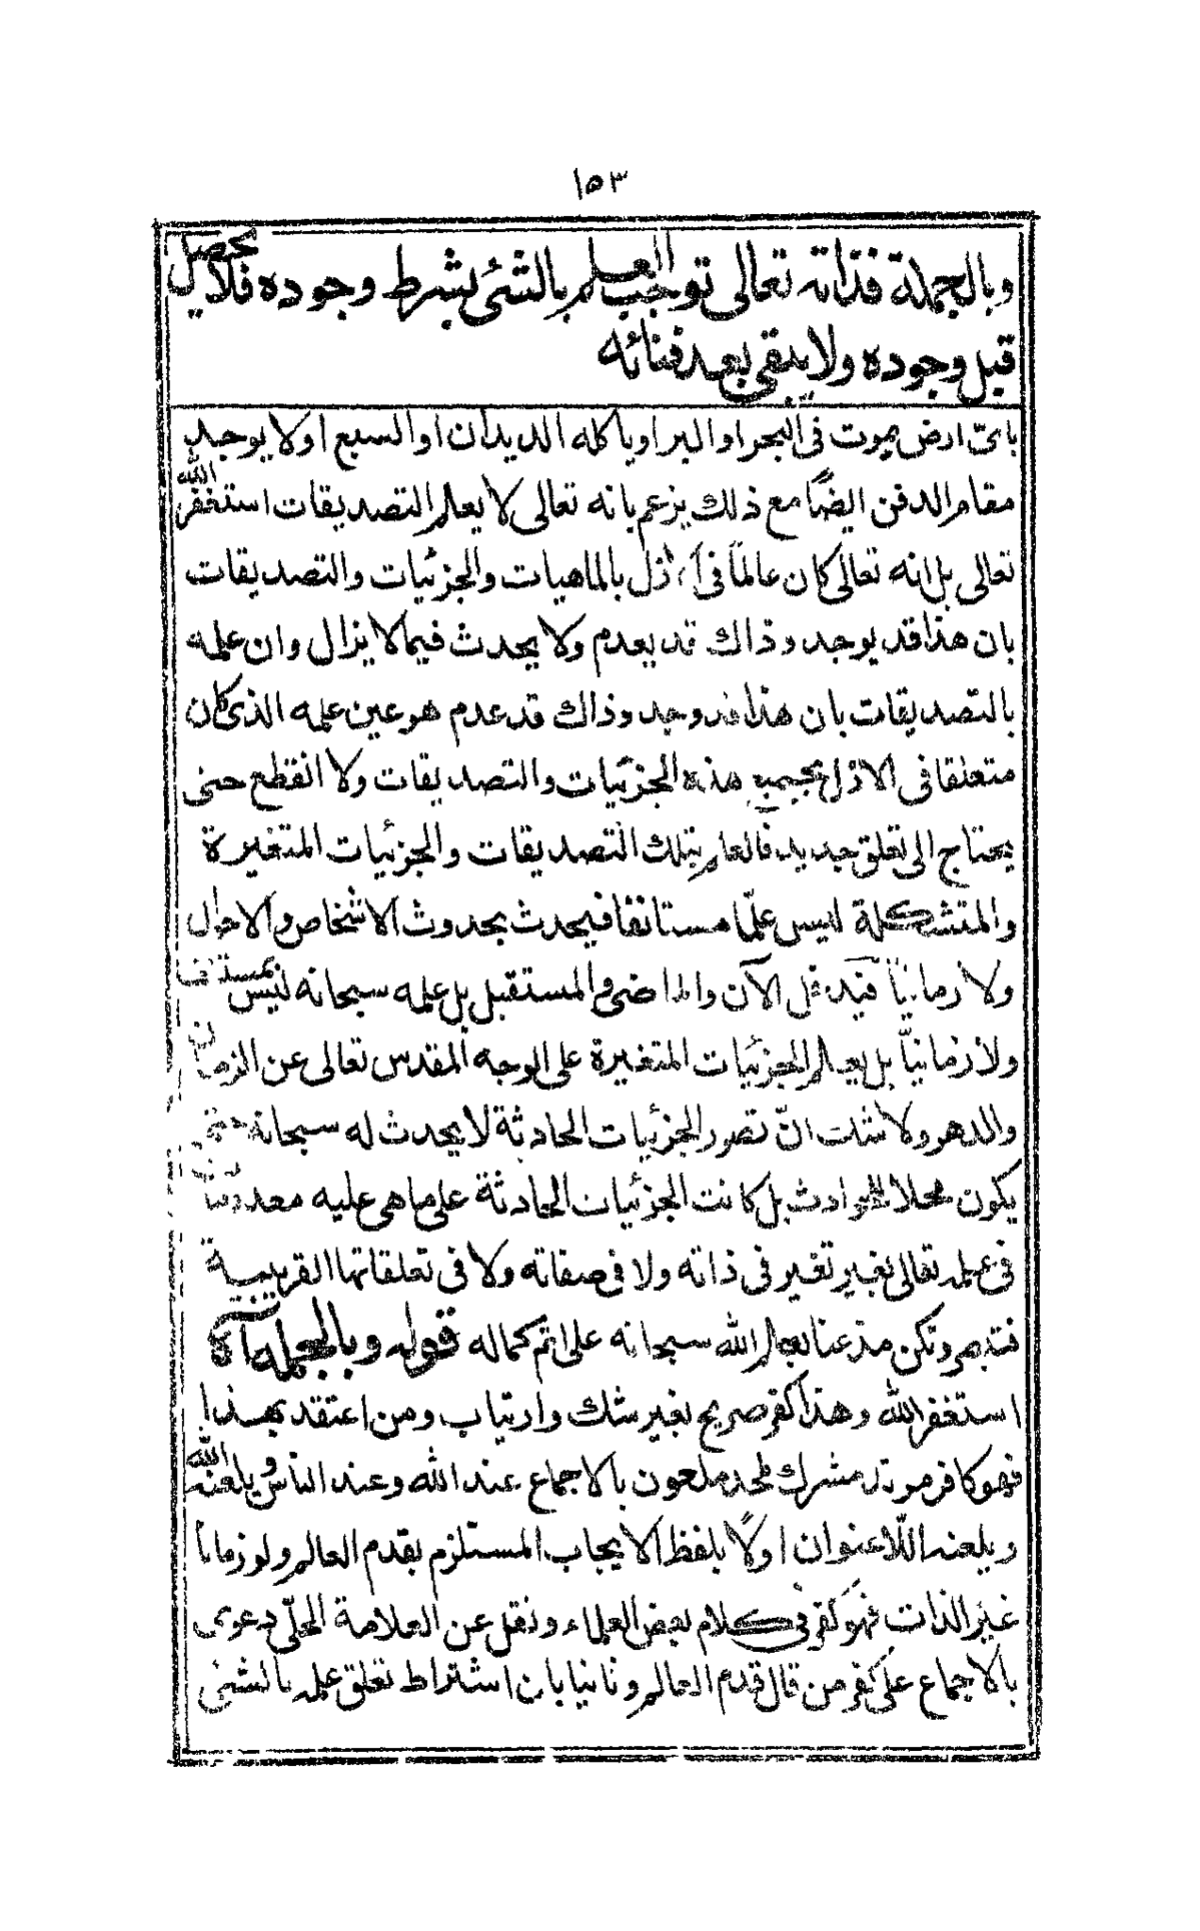 ١٥٣
وبالجملة فذاته تعالى توجب العلم بالشئ بشرط وجوده فلا يحصل
قبل وجوده ولا يبقى بعد فنائه
باىّ ارض يموت فى البحر او البر او ياكله الديدان او السبع او لا يوجد
مقام الدفن ايضًا مع ذلك يزعم بانه تعالى لا يعلم التصديقات استغفر الله
تعالى بل انه تعالى كان عالمًا فى الازل بالماهيات والجزئيات والتصديقات
بان هذا قد يوجد وذاك قد يعدم ولا يحدث فيما لا يزال وان علمه
بالتصديقات بان هذا قد وجد وذاك قد عدم هو عين علمه الذى كان
متعلقا فى الازل بجميع هذه الجزئيات والتصديقات ولا انقطع حتى
يحتاج الى تعلق جديد فالعلم بتلك التصديقات والجزئيات المتغيرة
والمتشكلة ليس علمًا مستانفا فيحدث بحدوث الاشخاص والاحوال
ولا زمانيًا الآن والماضى والمستقبل بل علمه سبحانه ليس
ولا زمانيًّا بل يعلم الجزئيات المتغيرة على الوجه المقدس تعالى عن الزمان
والدهر ولا شك انّ تصور الجزئيات الحادثة لا يحدث له سبحانه حتى
يكون محلا للحوادث بل كانت الجزئيات الحادثة على ما هى عليه
فى علمه تعالى بغير تغير فى ذاته ولا فى صفاته ولا فى تعلقاتها القريبية
فتدبر وتكن مذعنا بعلم الله سبحانه على اتم كماله قوله وبالجملة آه
استغفر الله وهذا كفر صريح بغير شك وارتياب ومن اعتقد بهذا
فهو كافر مرتد مشرك ملحد ملعون بالاجماع عند الله وعند الناس ويلعنه الله
ويلعنه اللاعنوان اولًا بلفظ الايجاب المستلزم بقدم العالم ولو زمانا
غير الذات فهو كفر فى كلام بعض العلماء ونقل عن العلامة المحلّى دعوى
بالاجماع على كفر من قال قدم العالم وثانيا بان اشتراط تعلق علمه بالشئى